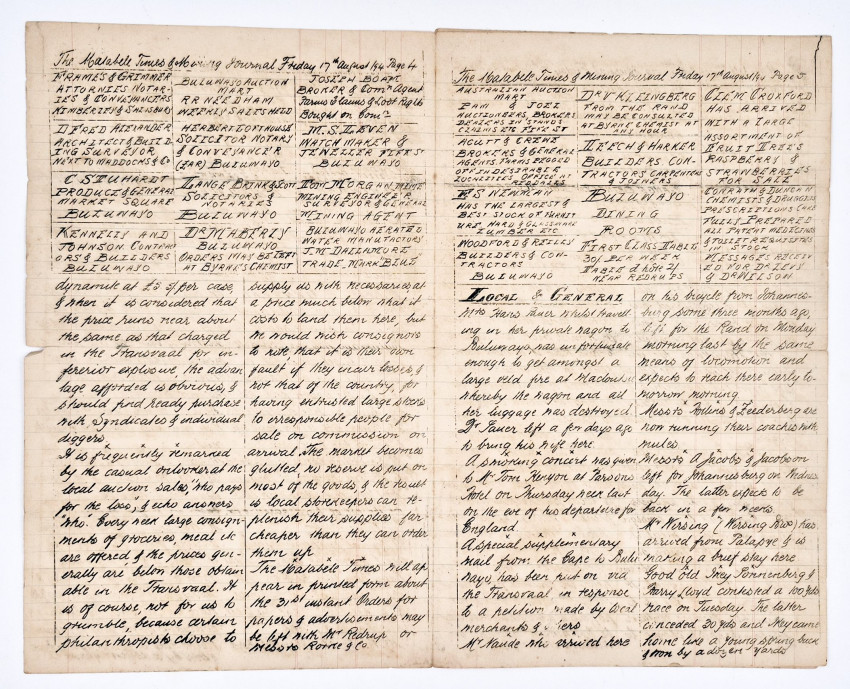 The Matabele Times & Mining Journal Friday 17th August 94 Page 4
FRAMES & GRIMMER
ATTORNIES NOTAR-
IES & CONVEYANCERS
KIMBERLEY & SALISBURY
BULUWAYO AUCTION
MART
R R NEEDHAM
WEEKLY SALES HELD
JOSEPH BOAM
BROKER & Comn Agent
Farms Claims & Loot Rights
Bought on Comn
D FRED ALEXANDER
ARCHITECT & BUILD-
ING SURVEYOR
NEXT TO MADDOCKS & Co
HERBERT LOFTHOUSE
SOLICITOR NOTARY
& CONVEYANCER
BULUWAYO
M.S. LEVEN
WATCH MAKER &
JEWELLER FIFE ST
BULUWAYO
C STUHARDT
PRODUCE & GENERAL
MARKET SQUARE
BULUWAYO
LANGE BRINK & LOTT
SOLICITORS &
NOTARIES
BULUWAYO
TOM MORGAN
MINING ENGINEER
SURVEYOR & GENERAL
MINING AGENT
KENNELLS AND
JOHNSON CONTRACT
ORS & BUILDERS
BULUWAYO
DR MABERLY
BULUWAYO
ORDERS MAY BE LEFT
AT BYRNE'S CHEMIST
BULUWAYO AERATED
WATER MANUFACTORS
J.W. DALLAMORE
TRADE MARK BLUE
dynamite at £5 5/ per case,
& when it is considered that
the price runs near about
the same as that charged
in the Transvaal for in-
fererior explosive, the advan
tage afforded is obvious, &
should find ready purchase
with Syndicates & individual
diggers.
It is frequently remarked
by the casual onlooker at the
local auction sales, "who pays
for the loss", & echo answers
"who". Every week large consign-
ments of groceries, meal &c
are offered & the prices gen-
erally are below those obtain
able in the Transvaal. It
is of course, not for us to
grumble, because certain
philanthropists choose to
supply us with necessaries at
a price much below what it
costs to land them here, but
we would wish consignors
to note that it is their own
fault if they incur losses, &
not that of the country, for
having entrusted large stocks
to irresponsible people for
sale on commission on
arrival. The market becomes
glutted, no reserve is put on
most of the goods, & the result
is local storekeepers can re-
plenish their supplies far
cheaper than they can order
them up
The Matabele Times will ap
pear in printed form about
the 31st instant Orders for
papers & advertisements may
be left with Mr Redrup or
Messrs Rorke & Co
The Matabele Times & Mining Journal Friday 17th August 94 Page 5
AUSTRALIAN AUCTION
MART
PAM & JOEL
AUCTIONEERS, BROKERS
DEALERS IN STANDS
CLAIMS ETC FIFE ST
DR V KLEINGBERG
FROM THE RAND
MAY BE CONSULTED
AT BYRNE CHEMIST AT
ANY HOUR
CLEM CROXFORD
HAS ARRIVED
WITH A LARGE
ASSORTMENT OF
FRUIT TREES
RASPBERRY &
STRAWBERRIES
FOR SALE
ACUTT & CRENE
BROKERS & GENERAL
AGENTS FARMS PEGGED
OFF IN DESIRABLE
LOCALITIES OFFICE AT
REDRUPES
LEECH & HARKER
BUILDERS CON-
TRACTORS CARPENTERS
& JOINERS
E S NEWMAN
HAS THE LARGEST &
BEST STOCK OF FURNIT
URE HARD & GLASSWARE
LUMBER ETC
BULUWAYO
DINING
ROOMS
FIRST CLASS TABLE
30/ PER WEEK
TABLE d'hôte 2/
NEAR REDRUPS
CONRATH & DUNCAN
CHEMISTS & DRUGGISTS
PRESCRIPTIONS CARE
FULLY PREPARED
ALL PATENT MEDICINES
& TOILET REQUISITES
IN STOCK
MESSAGES RECEIV
ED FOR DR LEVY
& DR WILSON
WOODFORD & REILLY
BUILDERS & CON-
TRACTORS
BULUWAYO
LOCAL & GENERAL
Mrs Hans Sauer whilst travell
ing in her private wagon to
Buluwayo, was unfortunate
enough to get amongst a
large veld fire at Macloutsi
whereby the wagon and all
her luggage was destroyed.
Dr Sauer left a few days ago
to bring his wife here.
A smoking concert was given
to Mr Tom Kenyon at Parsons
Hotel on Thursday week last
on the eve of his departure for
England
A special supplimentary
mail from the Cape to Bulu
wayo, has been put on via
the Transvaal in response
to a petition made by local
merchants & others
Mr Naude who arrived here
on his bicycle from Johannes-
burg some three months ago,
left for the Rand on Monday
morning last by the same
means of locomotion and
expects to reach there early to-
morrow morning.
Messrs Rolins & Zeederberg are
now running their coaches with
mules.
Messrs A Jacobs & Jacobson
left for Johannesburg on Wednes
day. The latter expects to be
back in a few weeks.
Mr Wersing (Wersing Bros) has
arrived from Palapye & is
making a brief stay here
Good old Ikey Sonnenberg &
Harry Lloyd contested a 100 yds
race on Tuesday. The latter
conceded 30 yds and Ikey came
home like a young spring buck
& won by a dozen yards